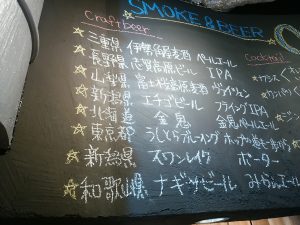 SMOKE & BEER
Craft beer
Cocktail
三重県 伊勢角屋麦酒 ペールエール
長野県 志賀高原ビール IPA
山梨県 富士桜高原麦酒 ヴァイツェン
新潟県 エチゴビール フライングIPA
北海道 金鬼 金鬼ペールエール
東京都 うしとらブルーイング
新潟県 スワンレイク ポーター
和歌山県 ナギサビール みかんエール